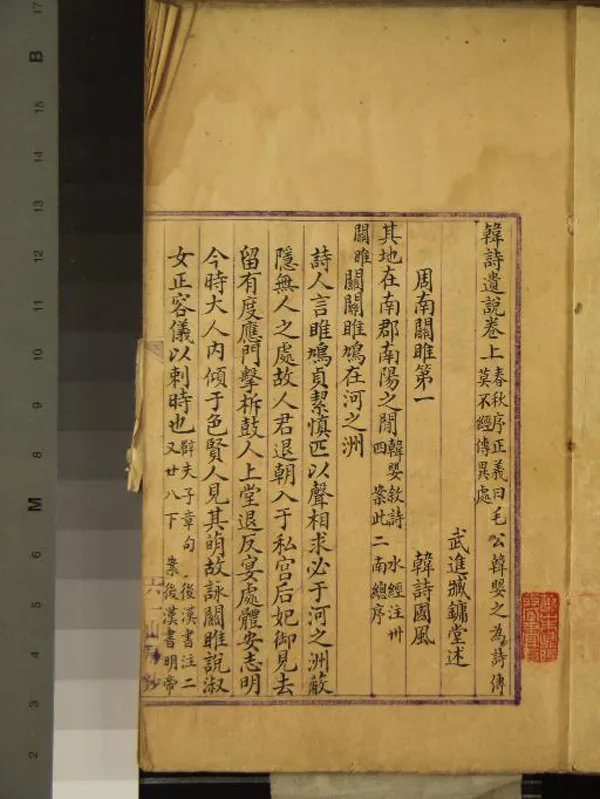 韓詩遺說卷上 春秋序正義曰毛公韓嬰之為詩傳莫不經傳異處
武進臧鏞堂述
周南關雎第一 韓詩國風
其地在南郡南陽之閒 韓嬰敘詩 水經注卅四 案此二南總序
關雎 關關雎鳩在河之洲
詩人言雎鳩貞絜慎匹以聲相求必于河之洲蔽
隱無人之處故人君退朝入于私宮后妃御見去
留有度應門擊柝鼓人上堂退反宴處體安志明
今時大人內傾于色賢人見其萌故詠關雎說淑
女正容儀以刺時也 薛夫子章句 後漢書注二又廿八下 案後漢書明帝